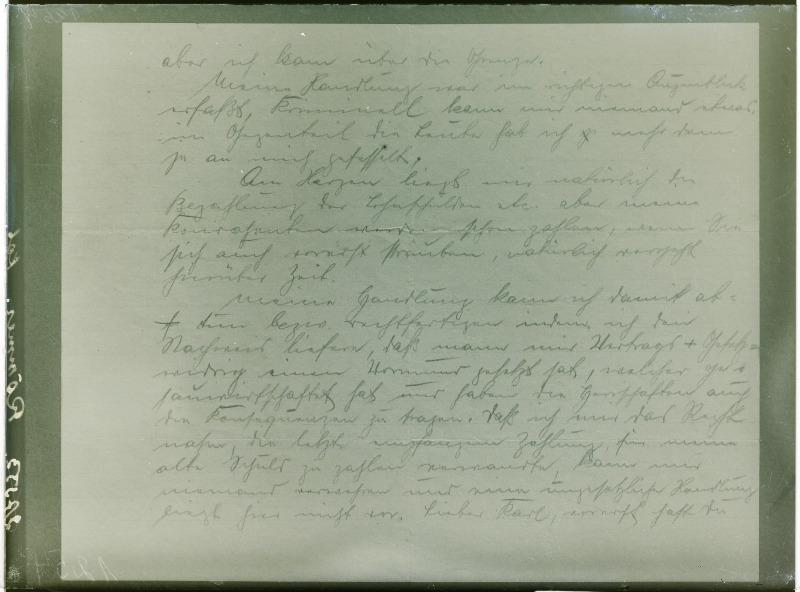 aber ich kam über die Grenze.
Meine Handlung war im richtigen Augenblick
erfaßt, kriminell kann mir niemand etwas,
im Gegenteil die Leute hab ich mehr denn
je an mich gefesselt.
Am Herzen liegt mir natürlich die
Bezahlung der Lohnschulden etc. aber meine
werden schon zahlen, wenn Sie
sich auch vorerst sträuben, natürlich vergeht
hierüber Zeit.
Meine Handlung kann ich damit ab=
tun bezw. rechtfertigen indem ich den
Nachweis liefere, daß mann mir Vertrags + Gesetz=
widrig einen Vormund gesetzt hat, welcher
hat und haben die Herrschaften auch
die Konsequenzen zu tragen. Daß ich mir das Recht
nahm, die letzte Zahlung, für meine
alte Schuld zu zahlen verwandte, kann mir
niemand verwehren und eine ungesetzliche Handlung
liegt hier nicht vor. Lieber Karl, vorerst hast Du